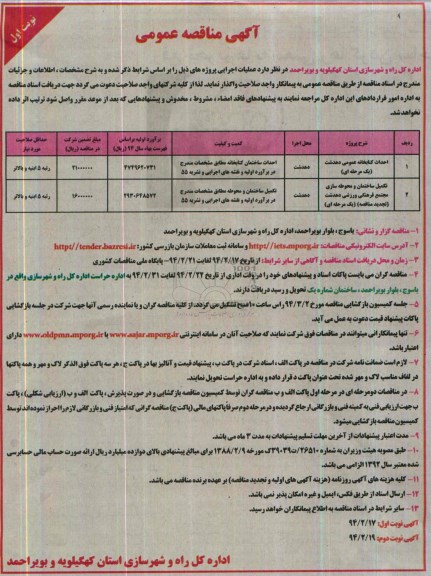 نوبت اول
آگهی مناقصه عمومی
اداره کل راه و شهرسازی استان کهگیلویه و بویراحمد در نظر دارد عملیات اجرایی پروژه های ذیل را بر اساس شرایط ذکر شده و به شرح مشخصات ، اطلاعات و جزئیات
مندرج در اسناد مناقصه از طریق مناقصه عمومی به پیمانکار واجد صلاحیت واگذار نماید. لذا از کلیه شرکتهای واجد صلاحیت دعوت می گردد جهت دریافت اسناد مناقصه
به اداره امور قراردادهای این اداره کل مراجعه نمایند به پیشنهادهای فاقد امضاء ، مشروط ، مخدوش و پیشنهادهایی که بعد از موعد مقرر واصل شود ترتیب اثر داده
نخواهد شد.
ردیف شرح پروژه محل اجرا کمیت و کیفیت برآورد اولیه براساس فهرست بهاء سال ۹۳ (ریال) مبلغ تضمین شرکت در مناقصه (ریال) حداقل صلاحیت مورد نیاز
۱ احداث کتابخانه عمومی دهدشت (یک مرحله ای) دهدشت احداث ساختمان کتابخانه مطابق مشخصات مندرج در برآورد اولیه و نقشه های اجرایی و نشریه ۵۵ رتبه ۵ ابنیه و بالاتر
۲ تکمیل ساختمان و محوطه سازی مجتمع فرهنگی ورزشی دهدشت (تجدید مناقصه) (یک مرحله ای) دهدشت تکمیل ساختمان و محوطه مطابق مشخصات مندرج در برآورد اولیه و نقشه های اجرایی و نشریه ۵۵ رتبه ۵ ابنیه و بالاتر
۱- مناقصه گزار و نشانی: یاسوج، بلوار بویراحمد، اداره کل راه و شهرسازی استان کهگیلویه و بویراحمد
۲- آدرس سایت الکترونیکی مناقصات: http://iets.mporg.ir و سامانه ثبت معاملات سازمان بازرسی کشور: http://tender.bazresi.ir
۳- زمان و محل دریافت اسناد مناقصه و آگاهی از سایر شرایط: از تاریخ ۹۴/۲/۱۷ لغایت ۹۴/۲/۲۱ – پایگاه ملی مناقصات کشوری
۴- مناقصه گران می بایست پاکات اسناد و پیشنهادهای خود را در وقت اداری از تاریخ ۹۴/۲/۲۲ لغایت ۹۴/۲/۳۱ به اداره حراست اداره کل راه و شهرسازی واقع در
یاسوج ، بلوار بویراحمد ، ساختمان شماره یک تحویل و رسید دریافت دارند.
۵- جلسه کمیسیون بازگشایی مناقصه مورخ ۹۴/۳/۲ راس ساعت ۱۰ صبح تشکیل می گردد، از کلیه مناقصه گران و یا نماینده رسمی آنها جهت شرکت در جلسه بازگشایی
پاکات پیشنهاد قیمت دعوت به عمل می آید.
۶- تنها پیمانکارانی میتوانند در مناقصات فوق شرکت نمایند که صلاحیت آنان در سامانه اینترنتی www.sajar.mporg.ir یا www.oldpmn.mporg.ir دارای
اعتبار باشد.
۷- لازم است ضمانت نامه شرکت در مناقصه در پاکت الف ، اسناد شرکت در پاکت ب ، پیشنهاد قیمت و آنالیز بها در پاکت ج ، هر سه پاکت فوق الذکر لاک و مهر و همه پاکتها
در لفاف مناسب لاک و مهر شده تحت عنوان پاکت د قرار داده و به اداره حراست تحویل نمایند.
۸- در مناقصات دو مرحله ای در مرحله اول پاکت الف و ب مناقصه گران توسط کمیسیون مناقصه بازگشایی و در صورت پذیرش ، پاکت الف و ب (ارزیابی شکلی) ، پاکت
ب جهت ارزیابی فنی به کمیته فنی و بازرگانی ارجاع گردیده و در مرحله دوم صرفا پاکتهای مالی (پاکت ج) مناقصه گرانی که امتیاز فنی و بازرگانی لازم را احراز نموده اند توسط
کمیسیون مناقصه بازگشایی میشود.
۹- مدت اعتبار پیشنهادات از آخرین مهلت تسلیم پیشنهادات به مدت ۳ ماه می باشد.
۱۰- طبق مصوبه هیئت وزیران به شماره ۲۶۵۱۰/ت۳۹۰۳۹ک مورخه ۱۳۸۸/۲/۹ برای مبالغ پیشنهادی بالای دوازده میلیارد ریال ارائه صورت حساب مالی حسابرسی
شده معتبر سال ۱۳۹۲ الزامی می باشد.
۱۱- کلیه هزینه های آگهی روزنامه (هزینه آگهی های اولیه و تجدید مناقصه) بر عهده برنده مناقصه می باشد.
۱۲- ارسال اسناد از طریق فکس، ایمیل و غیره امکان پذیر نمی باشد.
۱۳- سایر شرایط در اسناد مناقصه به اطلاع پیمانکاران خواهد رسید.
آگهی نوبت اول: ۹۴/۲/۱۷
آگهی نوبت دوم: ۹۴/۲/۱۹
اداره کل راه و شهرسازی استان کهگیلویه و بویراحمد